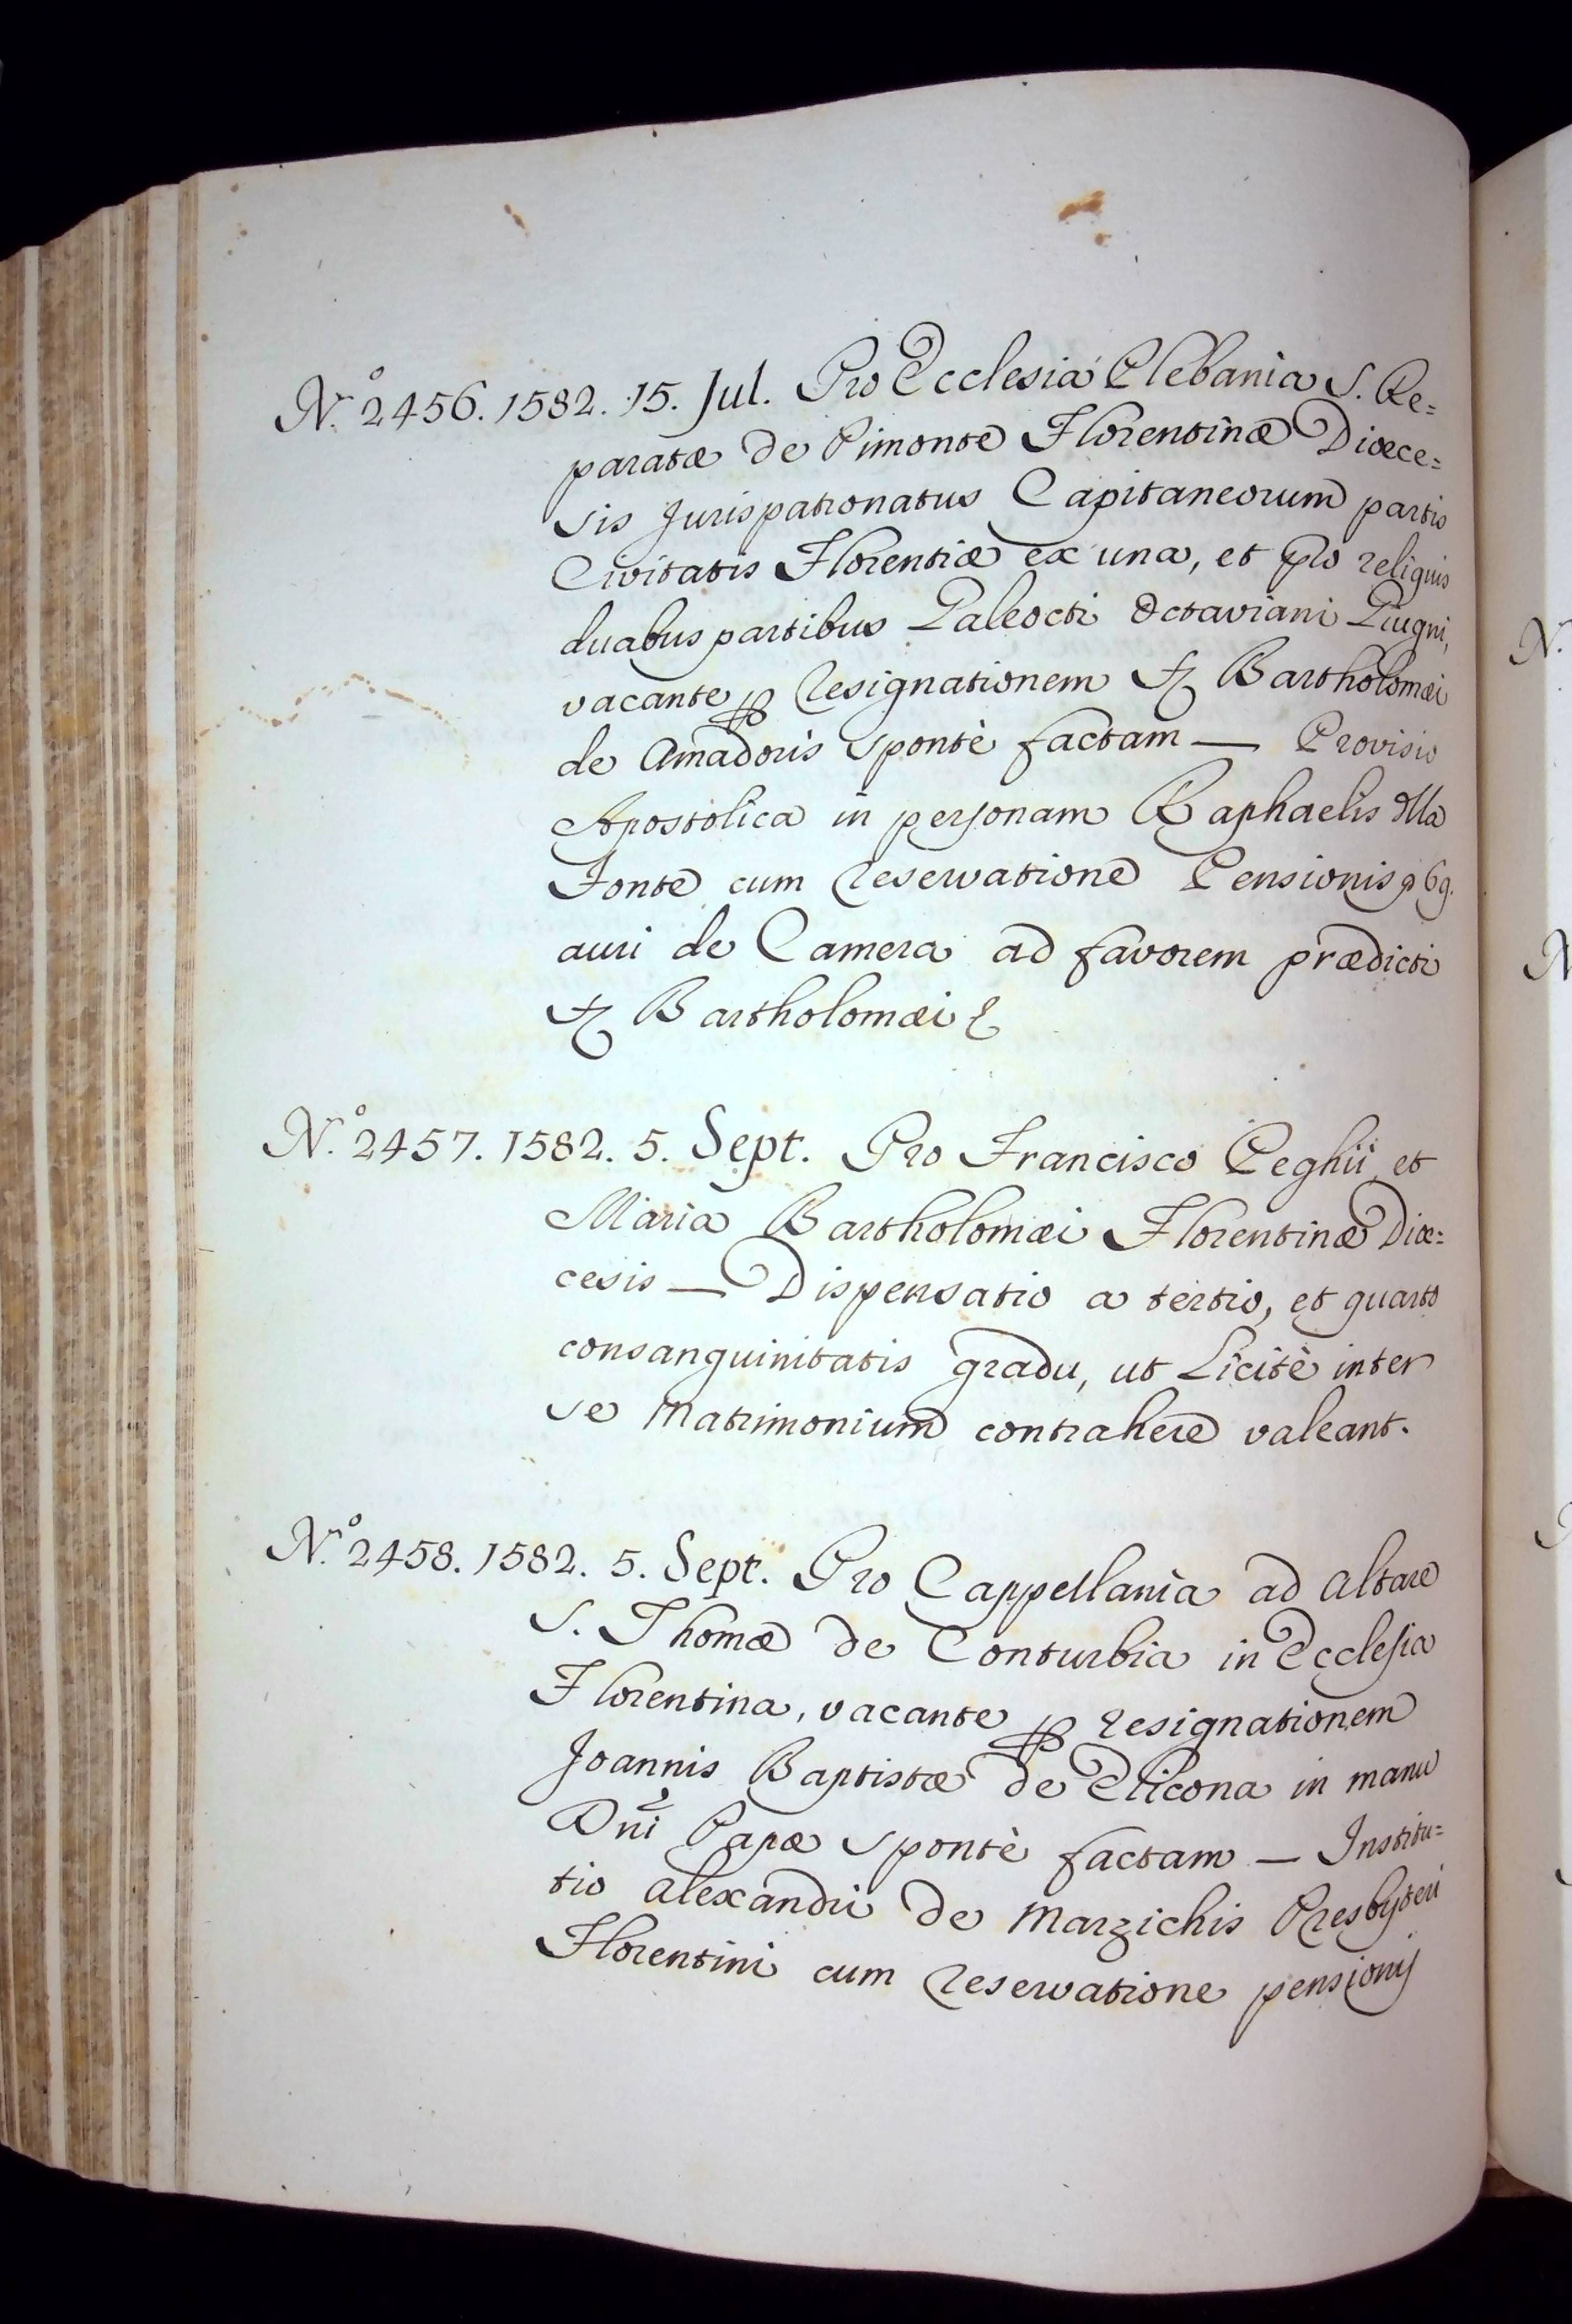 N.º 2456. 1582. 15. Jul. Pro Ecclesia Plebania S. Re=
paratæ de Pimonte Florentinæ Diœce=
sis Jurispatronatus Capitaneorum partis
Civitatis Florentiæ ex una, et pro reliquis
duabus partibus Galeocti Octaviani Giugni,
vacante p resignationem Bartholomæi
de Amadoris spontè factam — Provisio
Apostolica in personam Raphaelis
Fonte cum reservatione Pensionis 69.
auri de Camera ad favorem prædicti
Bartholomæi
N.º 2457. 1582. 5. Sept. Pro Francisco Peghii et
Maria Bartholomæi Florentinæ Diœ=
cesis — Dispensatio a tertio, et quarto
consanguinitatis gradu, ut Licitè inter
se Matrimonium contrahere valeant.
N.º 2458. 1582. 5. Sept. Pro Cappellania ad altare
S. Thomæ de Conturbia in Ecclesia
Florentina, vacante p resignationem
Joannis Baptistæ de Elicona in manu
Dni Papæ spontè factam — Institu=
tio Alexandri de Marzichis Presbyteri
Florentini cum reservatione pensionis
N.
N